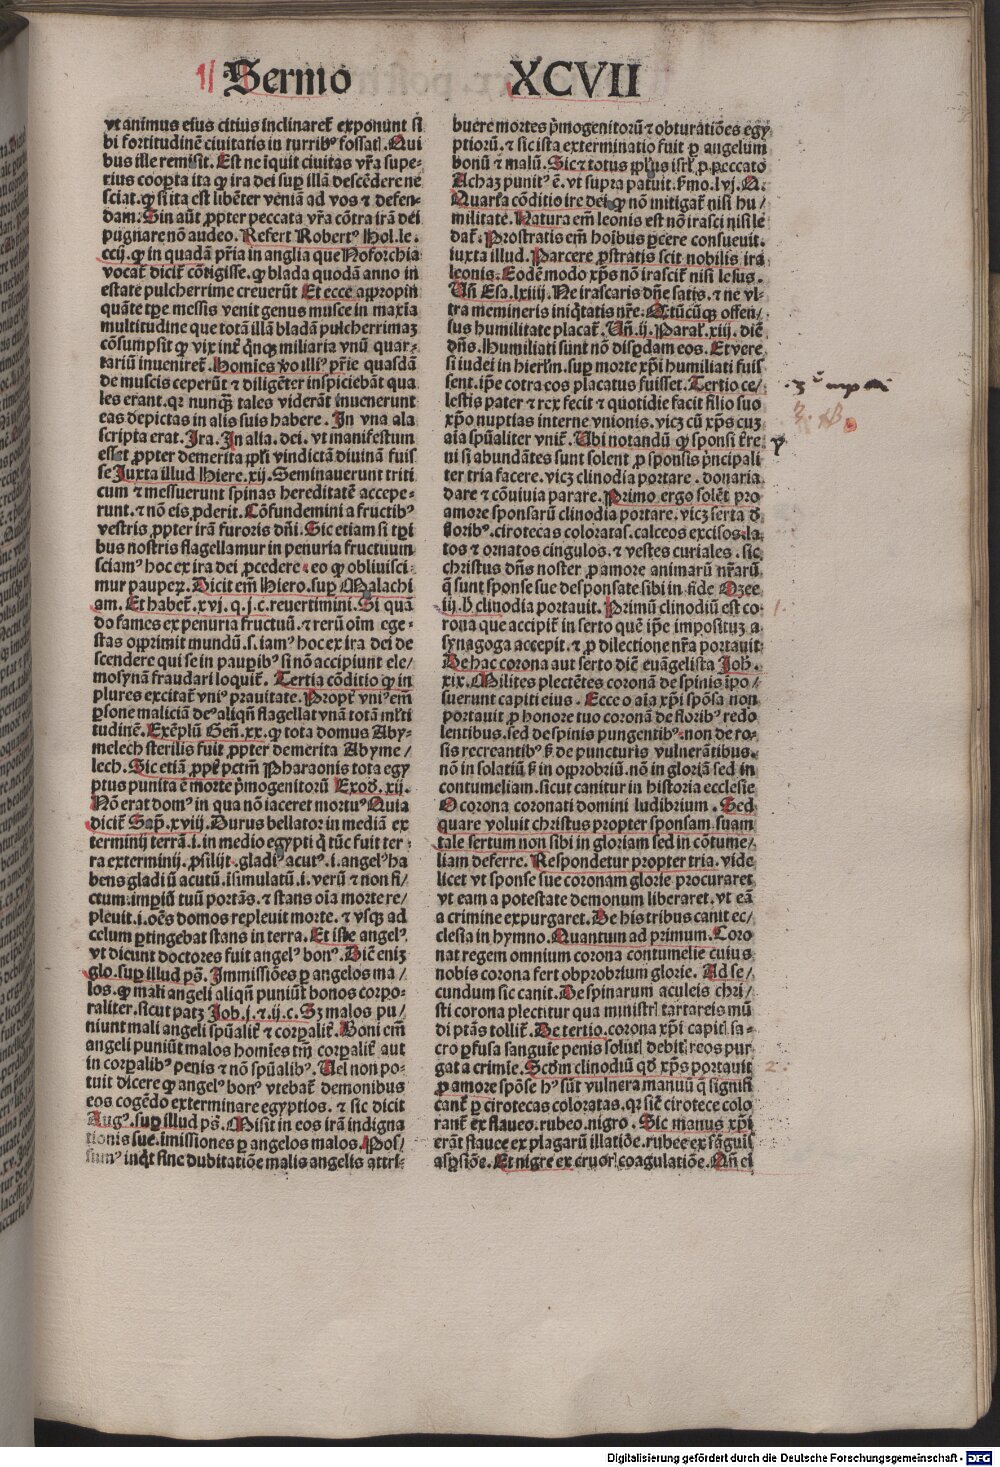 Sermo XCVII
vt animus eius citius inclinaret᷑ exponunt si
bi fortitudinē ciuitatis in turribꝰ fossatꝭ. Qui
bus ille remisit. Est ne iquit ciuitas vr̄a supe-
rius coopta ita ꝙ ira dei suꝑ illā descēdere ne
sciat. ꝙ si ita est libēter veniā ad vos ⁊ defen-
dam. Sin aūt ꝓpter peccata vr̄a cōtra irā dei
pugnare nō audeo. Refert Robertꝰ Hol. le.
ccij. ꝙ in quadā pr̄ia in anglia que Noforchia
vocat᷑ dicit᷑ cōtigisse. ꝙ blada quodā anno in
estate pulcherrime creuerūt Et ecce appropin
quāte tꝑe messis venit genus musce in maxīa
multitudine que totā illā bladā pulcherrimaꝫ
cōsumpsit ꝙ vix int᷑ qnꝙ miliaria vnū quar-
tariū inueniret᷑. Homīes ꝟo illiꝰ pr̄ie quasdā
de muscis ceperūt ⁊ diligēter inspiciebāt qua
les erant. qꝛ nunꝙ̄ tales viderāt inuenerunt
eas depictas in alis suis habere. In vna ala
scripta erat. Ira. In alia. dei. vt manifestum
esset ꝓpter demerita ppl̄i vindictā diuinā fuis
se Juxta illud Hiere. xij. Seminauerunt triti
cum ⁊ messuerunt spinas hereditatē accepe-
runt. ⁊ nō eis ꝓderit. Cōfundemini a fructibꝰ
vestris ꝓpter irā furoris dn̄i. Sic etiam si tꝑi
bus nostris flagellamur in penuria fructuum
sciamꝰ hoc ex ira dei ꝓcedere. eo ꝙ obliuisci-
mur pauperꝫ. Dicit em̄ Hiero. suꝑ Malachi
am. Et habet᷑. xvi. q. j. c. reuertimini. Si quā
do fames ex penuria fructuū. ⁊ rerū oīm ege-
stas opprimit mundū. s. iamꝰ hoc ex ira dei de
scendere qui se in pauꝑibꝰ si nō accipiunt ele/
mosynā fraudari loquit᷑. Tertia cōditio ꝙ in
plures excitat᷑ vniꝰ prauitate. Propt᷑ vniꝰ em̄
ꝑsone maliciā deꝰ aliqn̄ flagellat vnā totā ml̄ti
tudinē. Exēplū Gen̄. xx. ꝙ tota domus Aby-
melech sterilis fuit ꝓpter demerita Abyme/
lech. Sic etiā ꝓpt᷑ pctm̄ Pharaonis tota egy
ptus punita ē morte pͥmogenitorū Exoꝺ. xij.
Nō erat domꝰ in qua nō iaceret mortuꝰ Quia
dicit᷑ Sap̄. xviij. Durus bellator in mediā ex
terminij terrā. i. in medio egypti q̄ tūc fuit ter-
ra exterminij. ꝓsilijt. gladiꝰ acutꝰ. i. angelꝰ ha
bens gladiū acutū. īsimulatū. i. verū ⁊ non fi/
ctum: impiū tuū portās. ⁊ stans oīa morte re/
pleuit. i. oēs domos repleuit morte. ⁊ vsqꝫ ad
celum ꝑtingebat stans in terra. Et iste angelꝰ
vt dicunt doctores fuit angelꝰ bonꝰ. Dic̄ eniꝫ
glo. suꝑ illud ps̄. Immissiōes ꝑ angelos ma/
los. ꝙ mali angeli aliqn̄ puniūt bonos corpo-
raliter. sicut patꝫ Job. j. ⁊ ij. c. Sꝫ malos pu/
niunt mali angeli spūalit᷑ ⁊ corꝑalit᷑. Boni em̄
angeli puniūt malos homīes tm̄ corꝑalit᷑ aut
in corꝑalibꝰ penis ⁊ nō spūalibꝰ. Uel non po-
tuit dicere ꝙ angelꝰ bonꝰ vtebat᷑ demonibus
eos cogēdo exterminare egyptios. ⁊ sic dicit
Augꝰ. suꝑ illud ps̄. Misit in eos irā indigna
tionis sue. īmissiones ꝑ angelos malos. Pos/
sumꝰ inq̄t sine dubitatiōe malis angelis attri-
buere mortes pͥmogenitorū ⁊ obturatiōes egy
ptiorū. ⁊ sic ista exterminatio fuit ꝑ angelum
bonū ⁊ malū. Sic ⁊ totus ppl̄us isrl̄ ꝓ peccato
Achaꝫ punitꝰ ē. vt supra patuit. ẜmo. lvj. N.
Quarta cōditio ire dei. ꝙ nō mitigat᷑ nisi hu/
militate. Natura em̄ leonis est nō irasci nisi le
dat᷑. Prostratis em̄ hoībus ꝑcere consueuit.
iuxta illud. Parcere ꝓstratis scit nobilis ira
leonis. Eodē modo xp̄s nō irascit᷑ nisi lesus.
Un̄ Esa. lxiiij. Ne irascaris dn̄e satis. ⁊ ne vl-
tra memineris iniq̄tatis nr̄e. Qn̄tūcūqꝫ offen/
sus humilitate placat᷑. Un̄. ij. Paral̄. xiij. dic̄
dn̄s. Humiliati sunt nō disꝑdam eos. Et vere
si iudei in hierl̄m. suꝑ morte xp̄i humiliati fuis
sent. ip̄e cōtra eos placatus fuisset. Tertio ce/
lestis pater ⁊ rex fecit ⁊ quotidie facit filio suo
xp̄o nuptias interne vnionis. vicꝫ cū xp̄s cuꝫ
aīa spūaliter vnit᷑. Ubi notandū ꝙ sponsi t᷑re
ni si abundātes sunt solent ꝓ sponsis pͥncipali
ter tria facere. vicꝫ clinodia portare. donaria
dare ⁊ cōuiuia parare. Primo ergo solēt pro
amore sponsarū clinodia portare. vicꝫ serta ꝺ
floribꝰ. cirotecas coloratas. calceos excisos. la
tos ⁊ ornatos cingulos. ⁊ vestes curiales. sic
christus dn̄s noster ꝓ amore animarū nr̄arū
q̄ sunt sponse sue desponsate sibi in fide Ozee
iij. h̄ clinodia portauit. Primū clinodiū est co-
rona que accipit᷑ in serto quē ip̄e impositurꝫ a
synagoga accepit. ⁊ ꝓ dilectione nr̄a portauit
De hac corona aut serto dic̄ euāgelista Joh̄.
xix. Milites plectētes coronā de spinis īpo/
suerunt capiti eius. Ecce o aīa xp̄i spōsa non
portauit ꝓ honore tuo coronā de floribꝰ redo
lentibus. sed de spinis pungentibꝰ. non de ro-
sis recreantibꝰ ẜꝫ de puncturis vulnerātibus.
nō in solatiū ẜꝫ in opprobriū. nō in gloriā sed in
contumeliam. sicut canitur in historia ecclesie
O corona coronati domini ludibrium. Sed
quare voluit christus propter sponsam suam
tale sertum non sibi in gloriam sed in cōtume/
liam deferre. Respondetur propter tria. vide
licet vt sponse sue coronam glorie procuraret
vt eam a potestate demonum liberaret. vt eā
a crimine expurgaret. De his tribus canit ec/
clesia in hymno. Quantum ad primum. Coro
nat regem omnium corona contumelie cuius
nobis corona fert obprobrium glorie. Ad se/
cundum sic canit. De spinarum aculeis chri/
sti corona plectitur qua ministrꝭ tartareis mū
di p̄tās tollit᷑. De tertio. corona xp̄i capitꝭ sa-
cro ꝑfusa sanguīe penis solutꝭ debitꝭ reos pur
gat a crimīe. Scd̄m clinodiū qd̄ xp̄s portauit
ꝓ amore spōse hꝰ sūt vulnera manuū q̄ signifi
cant᷑ ꝑ cirotecas coloratas. qꝛ sic̄ cirotece colo
rant᷑ ex flaueo. rubeo. nigro. Sic manus xp̄i
erāt flauee ex plagarū illatiōe. rubee ex sāguīs
aspsiōe. Et nigre ex cruorꝭ coagulatiōe. Nn̄ ei
1.
2.
Digitalisierung gefördert durch die Deutsche Forschungsgemeinschaft - DFG